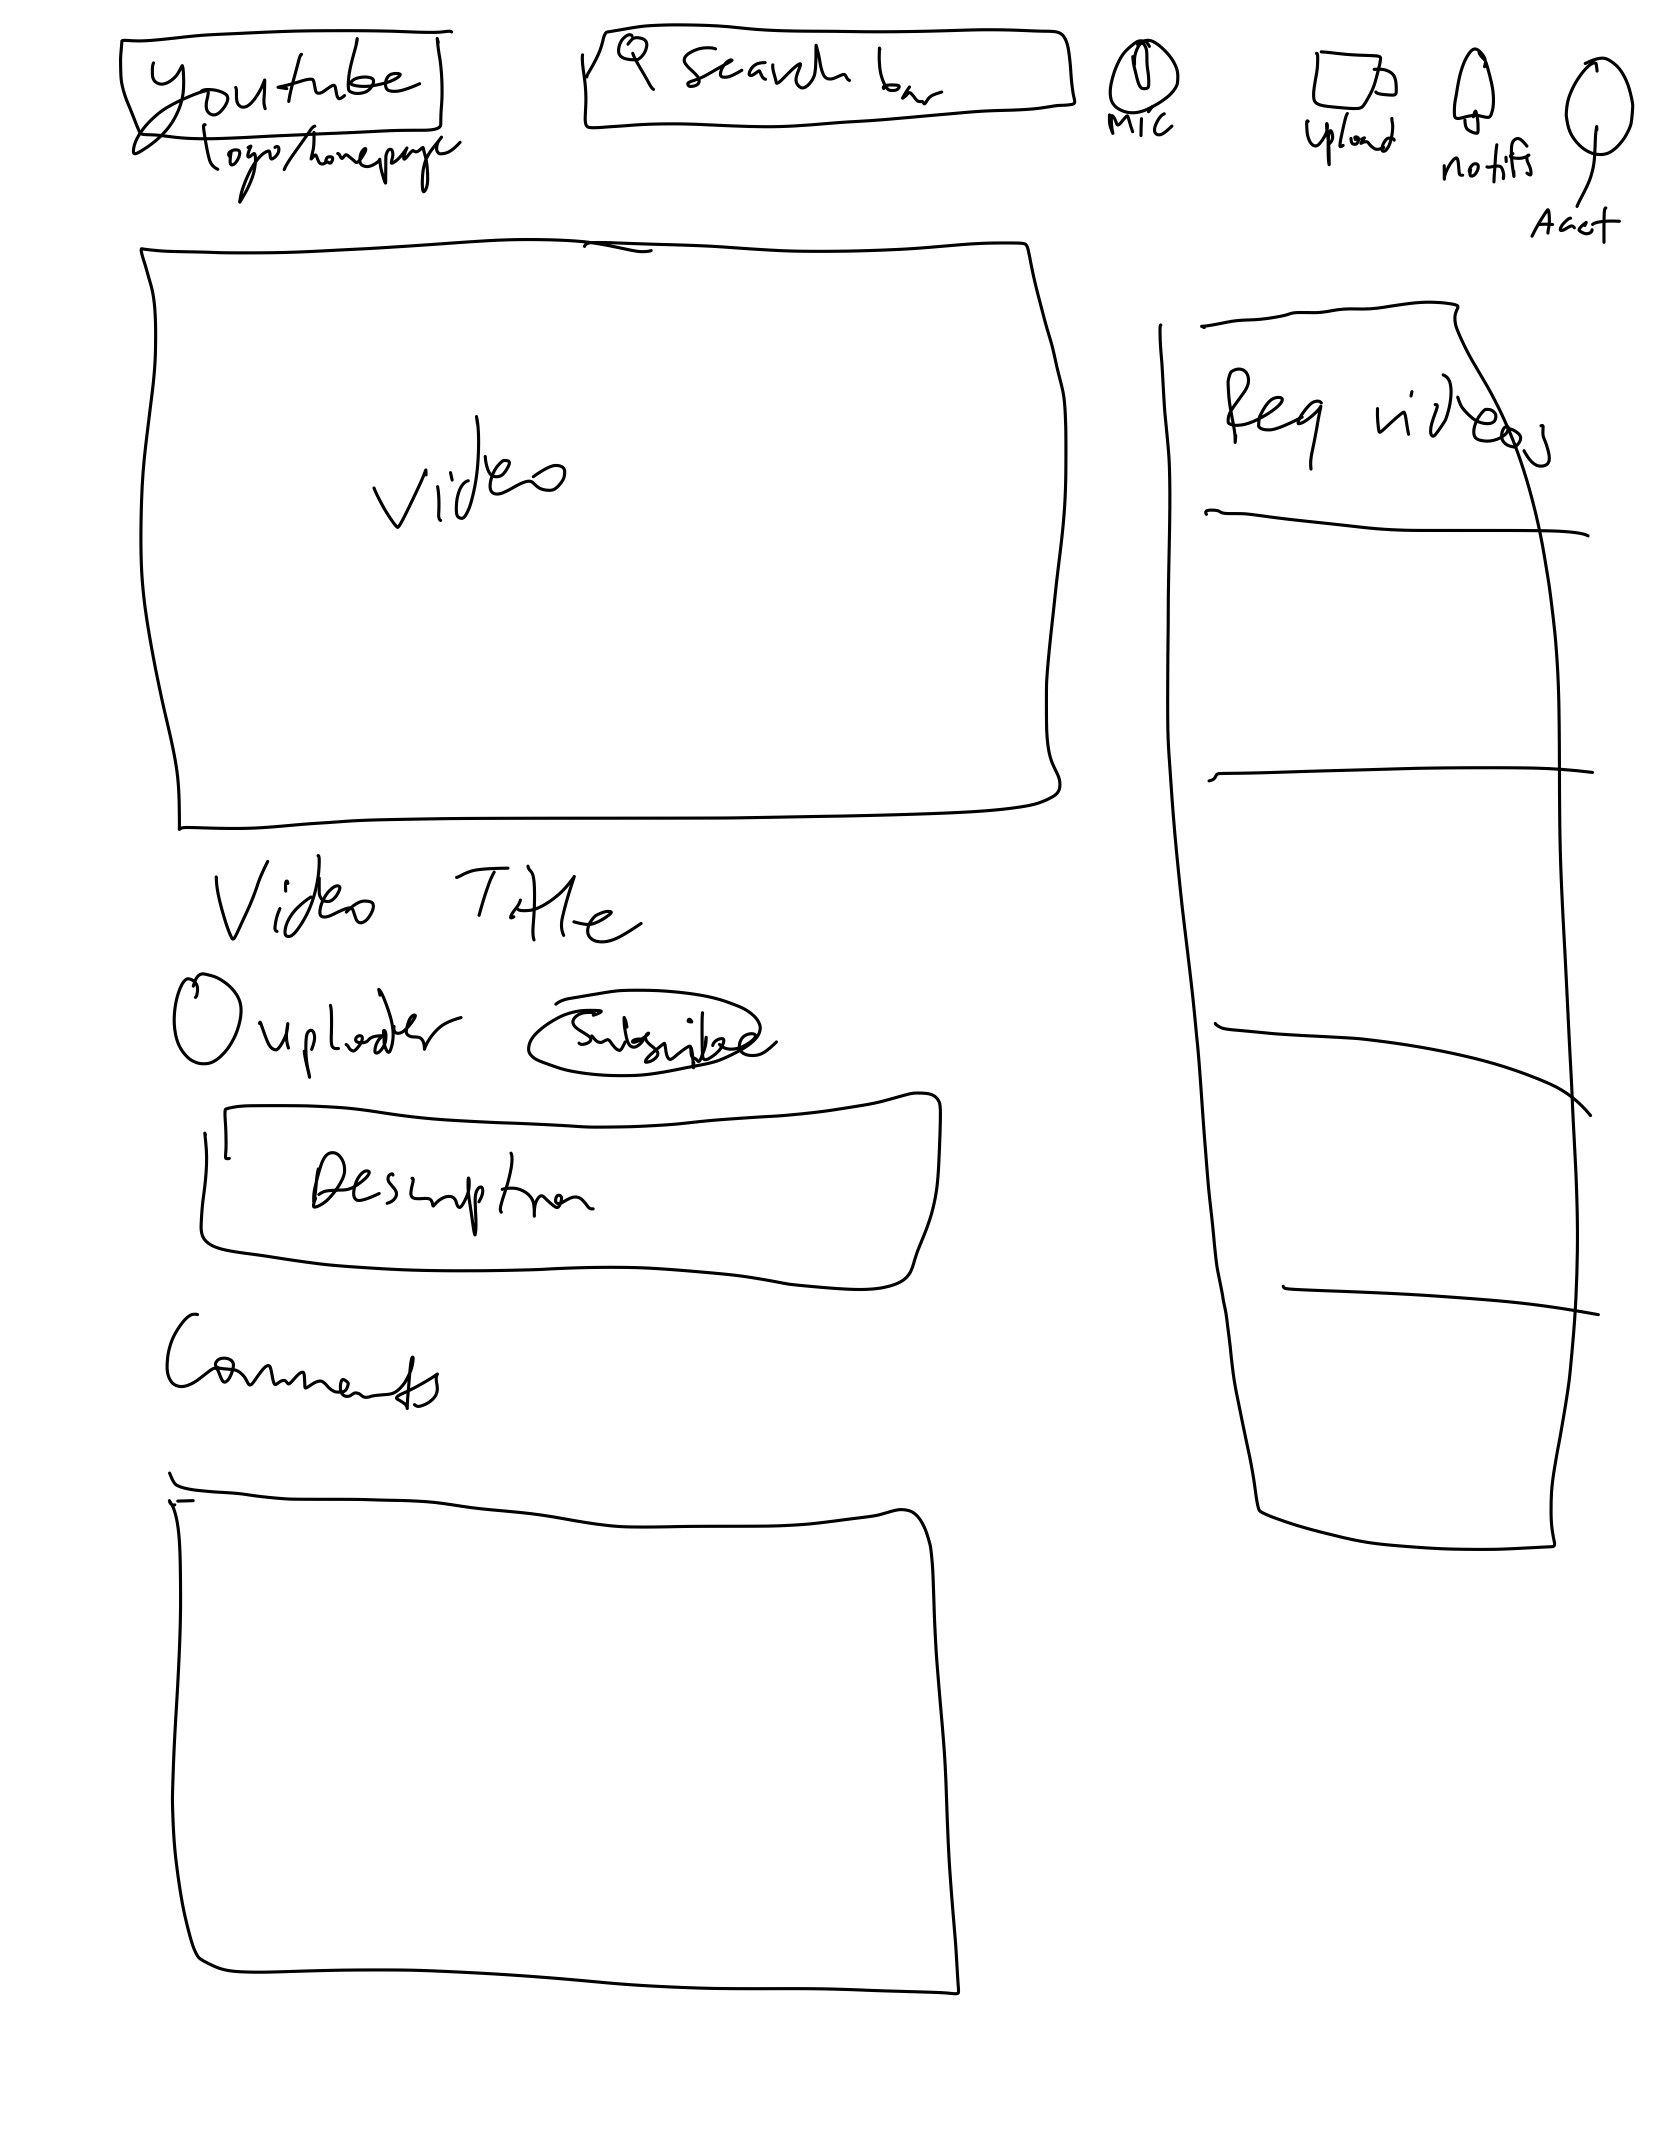 Youtube
logo/homepage
Search bar
Mic
Upload
notifs
Acct
Video
Req videos
Video Title
uploader
Subscribe
Description
Comments